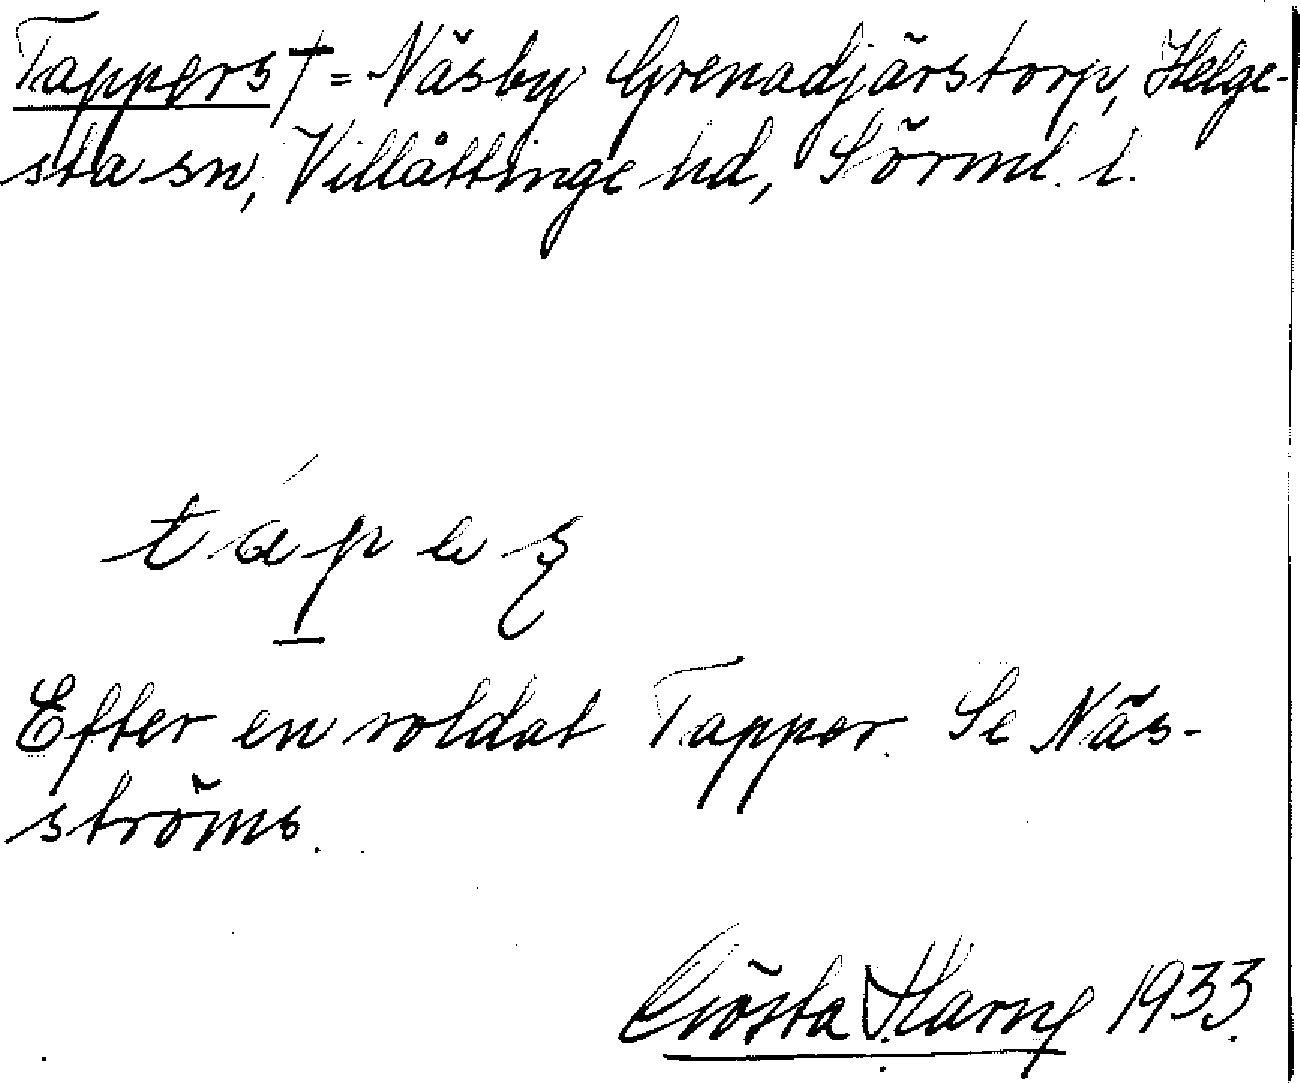 Tappers † = Näsby Grenadjärstorp, Helge-
sta sn, Villåttinge hd, Sörml. l.
tápeʂ
Efter en soldat Tapper. Se Näs-
ströms.
Gösta 1933.